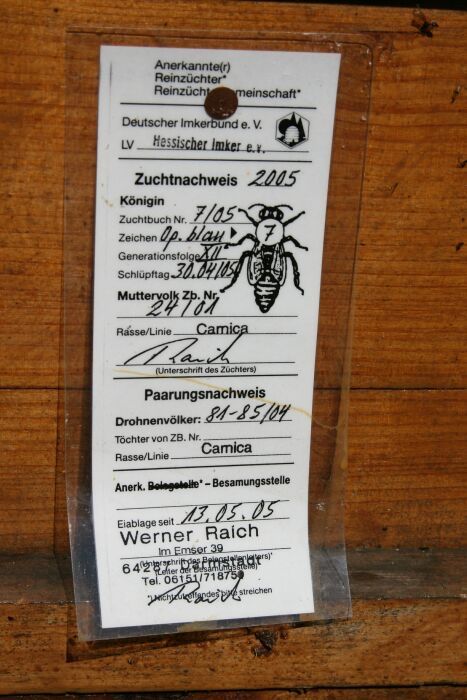 Anerkannte(r)
Reinzüchter*
Reinzücht meinschaft*
Deutscher Imkerbund e. V.
LV Hessischer Imker e.V.
Zuchtnachweis 2005
Königin
Zuchtbuch Nr. 7/05
Zeichen Op. blau
7
Generationsfolge XII
Schlüpftag 30.04/05
Muttervolk Zb. Nr.
24/01
Rasse/Linie Carnica
Raich
(Unterschrift des Züchters)
Paarungsnachweis
Drohnenvölker: 81-85/04
Töchter von ZB. Nr.
Rasse/Linie Carnica
Anerk. Belegstelle* – Besamungsstelle
Eiablage seit 13.05.05
Werner Raich
Im Emser 39
(Unterschrift des Belegstellenleiters)*
Darmstadt
(Leiter der Besamungsstelle)
Tel. 06151/71875
*) Nichtzutreffendes bitte streichen
Raich